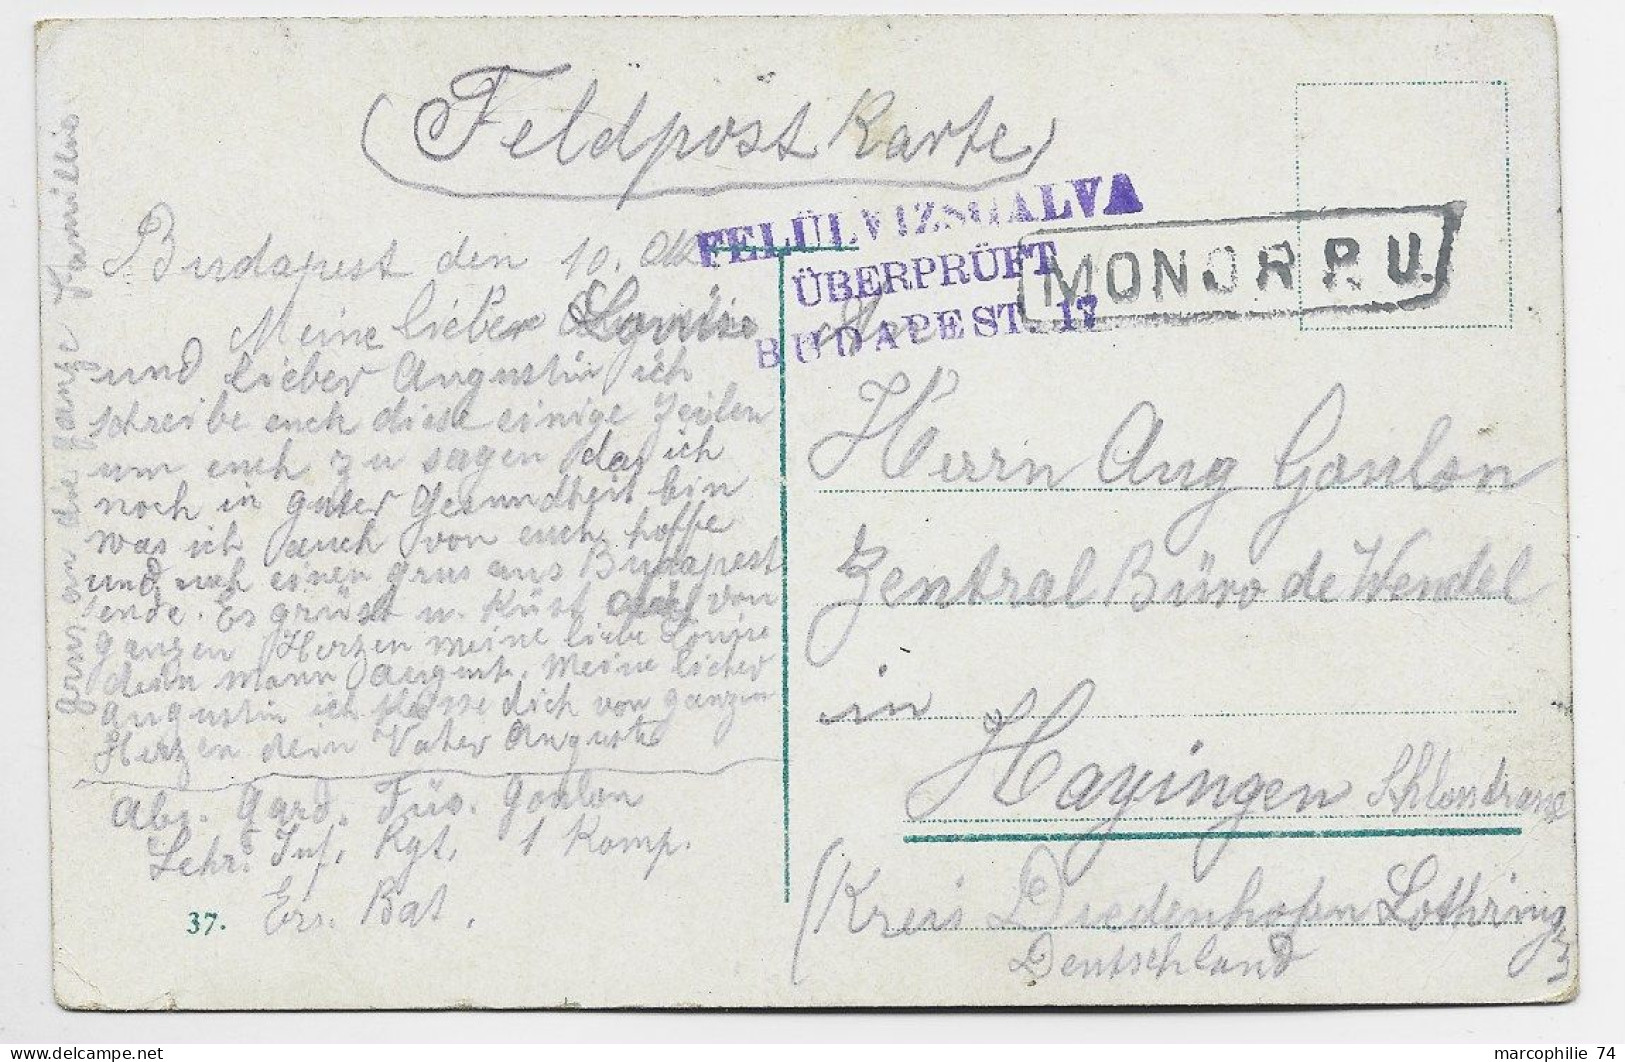 (Feldpost Karte)
FELÜLVIZSGALVA
ÜBERPRÜFT
BUDAPEST. 17
MONOR P. U.
Budapest den 10. Okt
Meine lieber Louise
und lieber Augustin ich
schreibe euch diese einige Zeilen
um euch zu sagen das ich
noch in guter Gesundheit bin
was ich auch von euch hoffe
und euch einen grus aus Budapest
sende. Es grüst u. Küst euch von
ganzen Herzen meine liebe Louise
dein mann August. Meine lieber
Augustin ich Küsse dich von ganzen
Herzen dein Vater Auguste
Abs. Gard. Füs. Goulon
Lehr. Inf. Rgt. 1 Komp.
Ers. Bat.
37.
Grus an die ganze Famillie
Herrn Aug Goulon
Zentral Büro de Wendel
in
Hayingen Schlonstrasse
(Kreis Diedenhofen Lothring
Deutschland
marcophilie 74